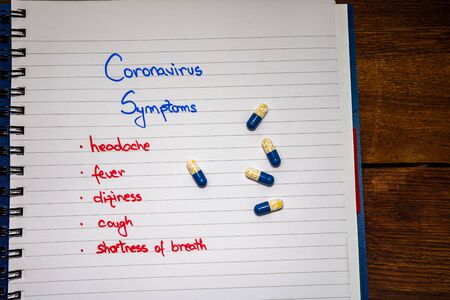 Coronavirus
Symptoms
· headache
· fever
· diziness
· cough
· shortness of breath